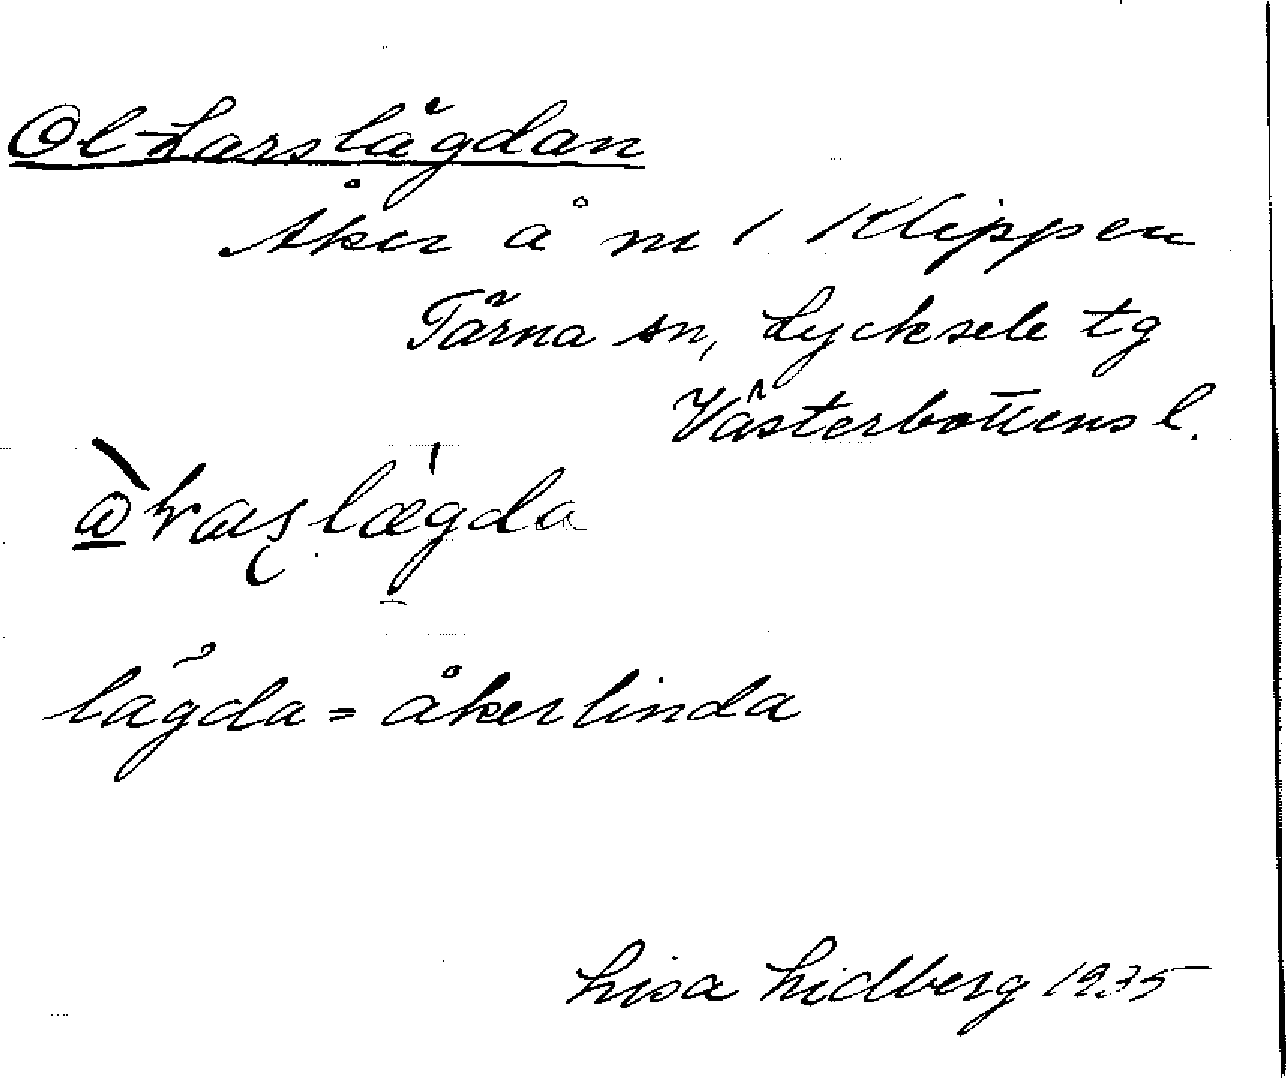 Ol-Larslägdan
Åker å nr 1 Klippen
Tärna sn, Lycksele tg
Västerbottens l.
lägda = åkerlinda
Lisa Lidberg 1935